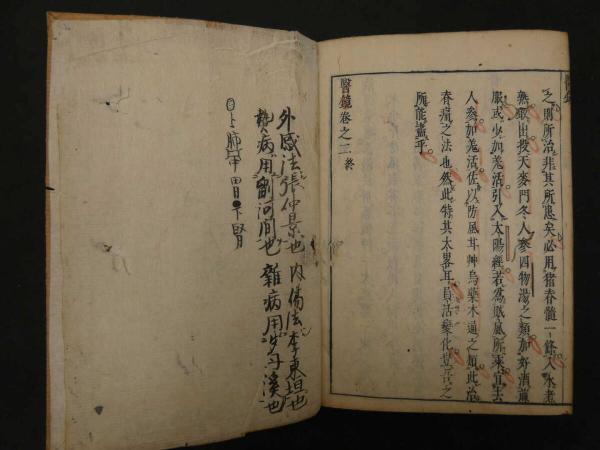 之則所治非其所患矣必用猪脊髓一條入水煮
熟取出投天麥門冬人參四物湯之類加好酒煎
服或少加羗活引入太陽經若為賊風所乘宜去
人參加羗活佐以防風耳艸烏藥木通之類此治
脊痛之法也然此特其大畧耳員活變化豈言之
所能盡乎
醫鏡卷之二終
外感法張仲景也 内傷法李東垣也
熱病用劉河间也 雜病用 丹溪也